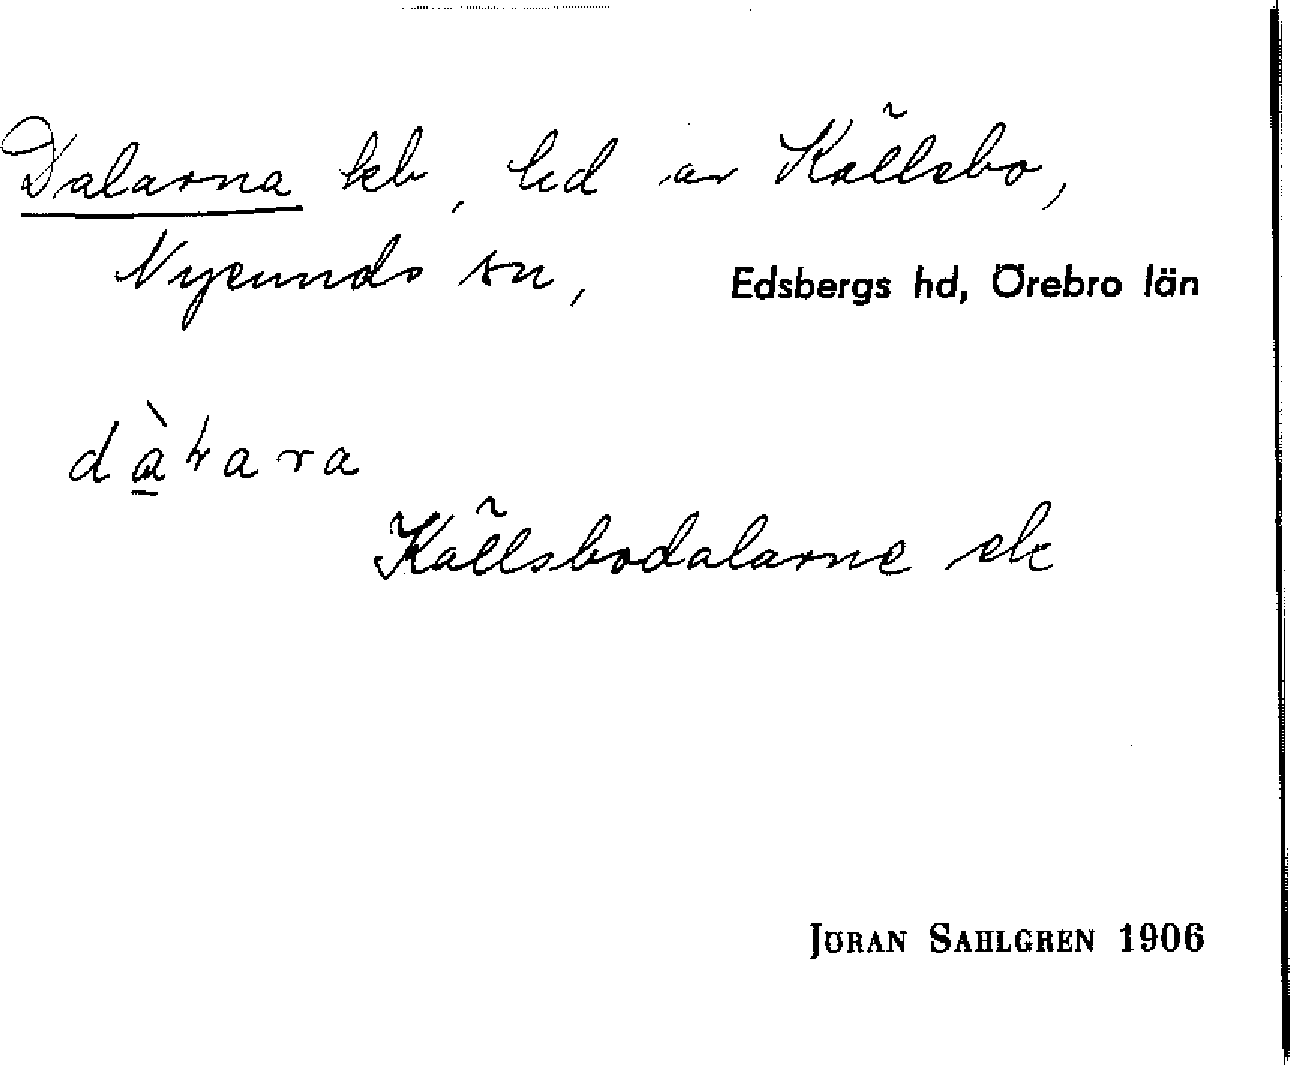 Dalarna hb, led av Källsbo,
Nysunds sn, Edsbergs hd, Örebro län
Källsbodalarne ek
JÖRAN SAHLGREN 1906